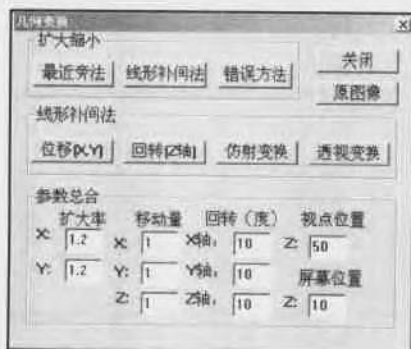 几何变换
扩大缩小
最近旁法 线形补间法 错误方法 关闭
原图像
线形补间法
位移[X,Y] 回转[Z轴] 仿射变换 透视变换
参数总合
扩大率 移动量 回转（度） 视点位置
X: 1.2 X: 1 X轴: 10 Z: 50
Y: 1.2 Y: 1 Y轴: 10 屏幕位置
Z: 1 Z轴: 10 Z: 10